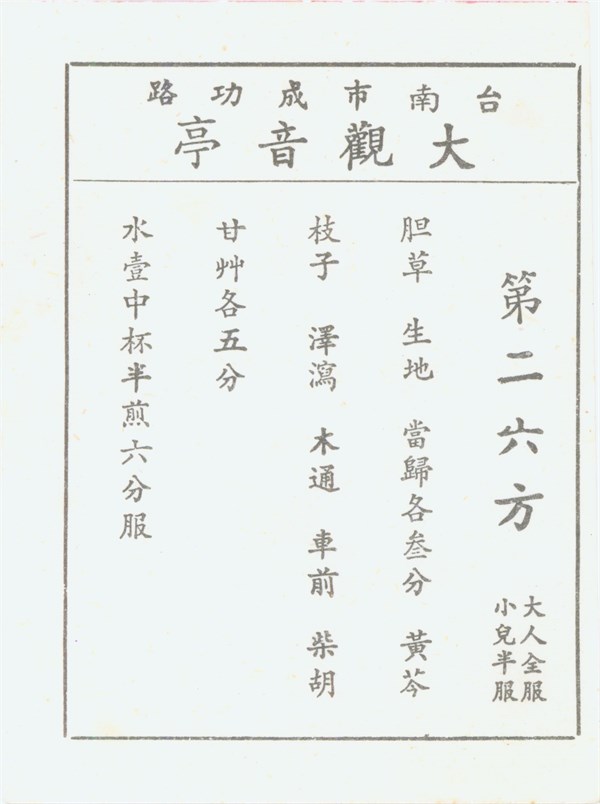 台南市成功路
大觀音亭
第二六方
大人全服
小兒半服
胆草 生地 當歸各叄分 黃芩
枝子 澤瀉 木通 車前 柴胡
甘艸各五分
水壹中杯半煎六分服